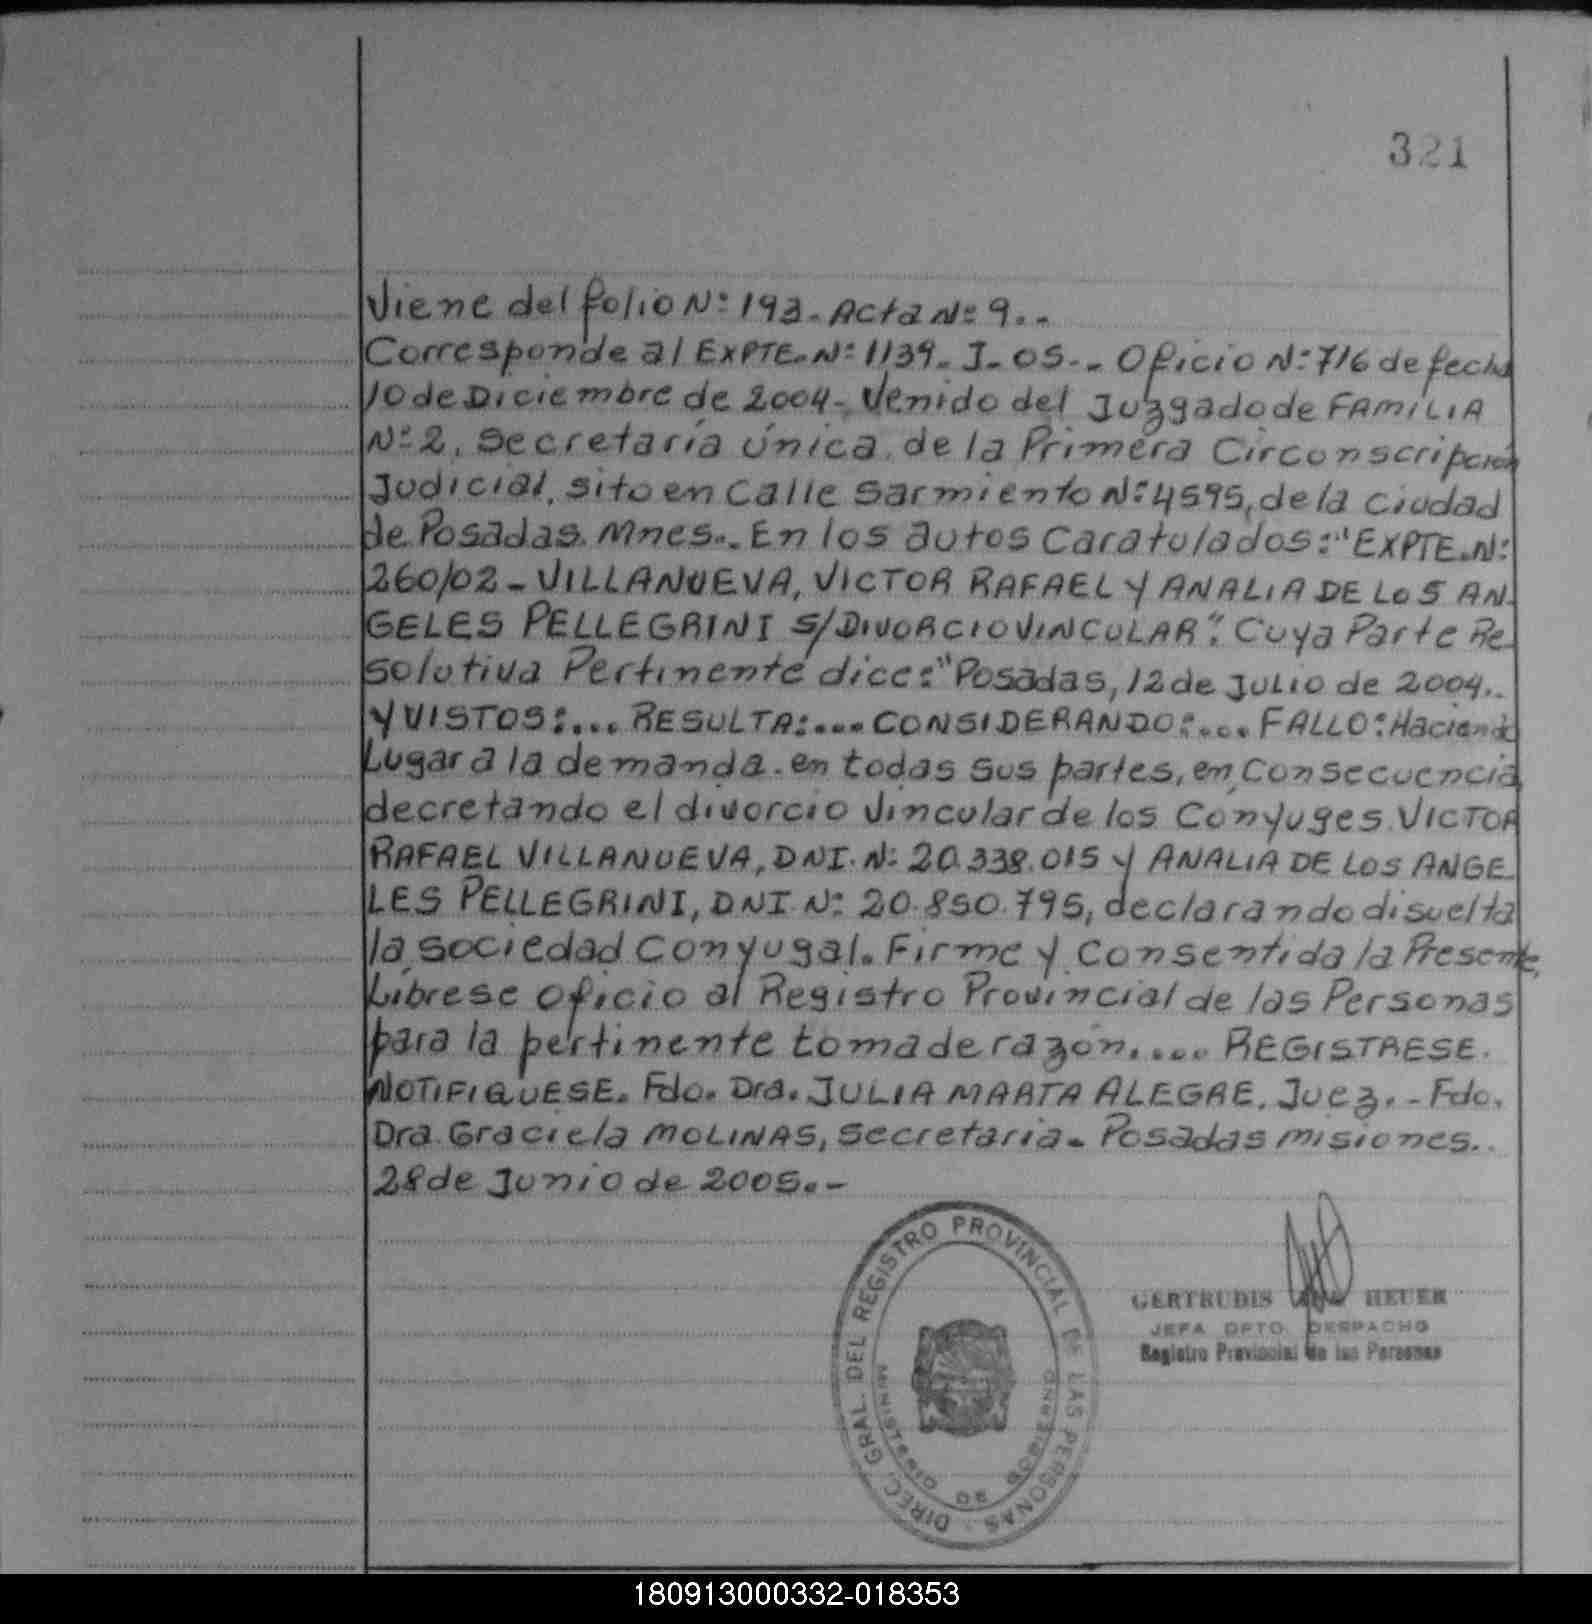 321
Viene del folio Nº 193. Acta Nº 9..-
Corresponde al EXPTE. Nº 1139. J-05.- Oficio Nº 716 de fecha
10 de Diciembre de 2004- Venido del Juzgado de FAMILIA
Nº 2. Secretaría única. de la Primera Circonscripción
Judicial. sito en Calle Sarmiento Nº 4595, de la Ciudad
de Posadas. Mnes.. En los autos Caratulados: "EXPTE. Nº
260/02 - VILLANUEVA, VICTOR RAFAEL Y ANALIA DE LOS AN-
GELES PELLEGRINI S/DIVORCIO VINCULAR". Cuya Parte Re-
solutiva Pertinente dice: "Posadas, 12 de JULIO de 2004..
Y VISTOS:... RESULTA:.... CONSIDERANDO:.... FALLO: Haciendo
Lugar a la demanda. en todas sus partes, en Consecuencia
decretando el divorcio Vincular de los Conyuges. VICTOR
RAFAEL VILLANUEVA, DNI. Nº 20.338.015 Y ANALIA DE LOS ANGE-
LES PELLEGRINI, DNI. Nº 20.850.795, declarando disuelta
la sociedad Conyugal. Firme y Consentida la Presente,
Líbrese Oficio al Registro Provincial de las Personas
para la pertinente toma de razón..... REGISTRESE.
NOTIFIQUESE. Fdo. Dra. JULIA MARTA ALEGRE. Juez.- Fdo.
Dra. Graciela MOLINAS, Secretaria. Posadas misiones..
28 de Junio de 2005.-
DIREC. GRAL. DEL REGISTRO PROVINCIAL DE LAS PERSONAS
MINISTERIO DE GOBIERNO
GERTRUDIS HEUER
JEFA DPTO. DESPACHO
Registro Provincial de las Personas
180913000332-018353